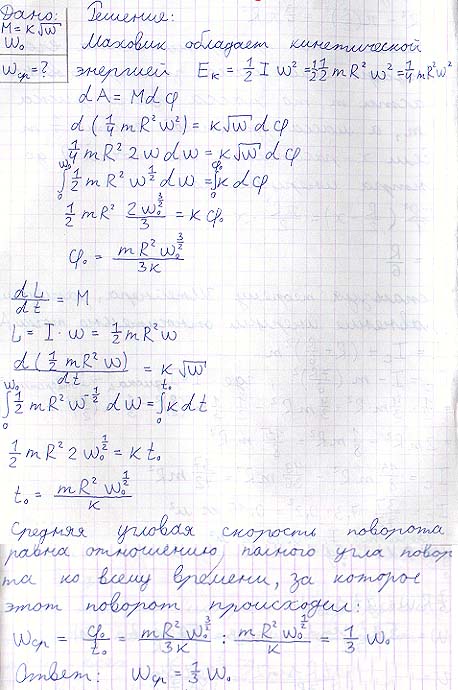 Дано:
M = K√w
w₀
wср = ?
Решение:
Маховик обладает кинетической
энергией Eк = 1/2 I w² = 1/2 1/2 mR² w² = 1/4 mR² w²
dA = Mdφ
d(1/4 mR² w²) = K√w dφ
1/4 mR² 2w dw = K√w dφ
∫₀^w₀ 1/2 mR² w^(1/2) dw = ∫₀^φ₀ K dφ
1/2 mR² 2w₀^(3/2)/3 = K φ₀
φ₀ = mR² w₀^(3/2)/3K
dL/dt = M
L = I · w = 1/2 mR² w
d(1/2 mR² w)/dt = K√w
∫₀^w₀ 1/2 mR² w^(-1/2) dw = ∫₀^t₀ K dt
1/2 mR² 2w₀^(1/2) = K t₀
t₀ = mR² w₀^(1/2)/K
Средняя угловая скорость поворота
равна отношению полного угла повор
та ко всему времени, за которое
этот поворот происходил:
wср = φ₀/t₀ = mR² w₀^(3/2)/3K : mR² w₀^(1/2)/K = 1/3 w₀
Ответ: wср = 1/3 w₀